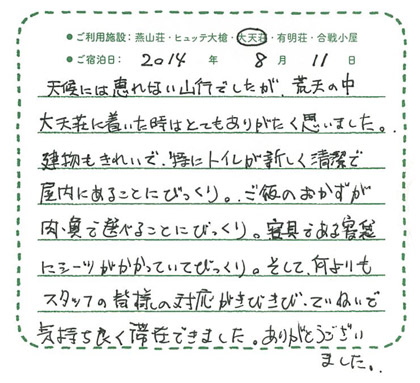 ● ご利用施設：燕山荘・ヒュッテ大槍・大天荘・有明荘・合戦小屋
● ご宿泊日： 2014 年 8 月 11 日
天候には恵れない山行でしたが、荒天の中
大天荘に着いた時はとてもありがたく思いました。
建物もきれいで、特にトイレが新しく清潔で
屋内にあることにびっくり。ご飯のおかずが
肉・魚で選べることにびっくり。寝具である寝袋
にシーツがかかっていてびっくり。そして、何よりも
スタッフの皆様の対応がきびきび、ていねいで
気持ち良く滞在できました。ありがとうござい
ました。